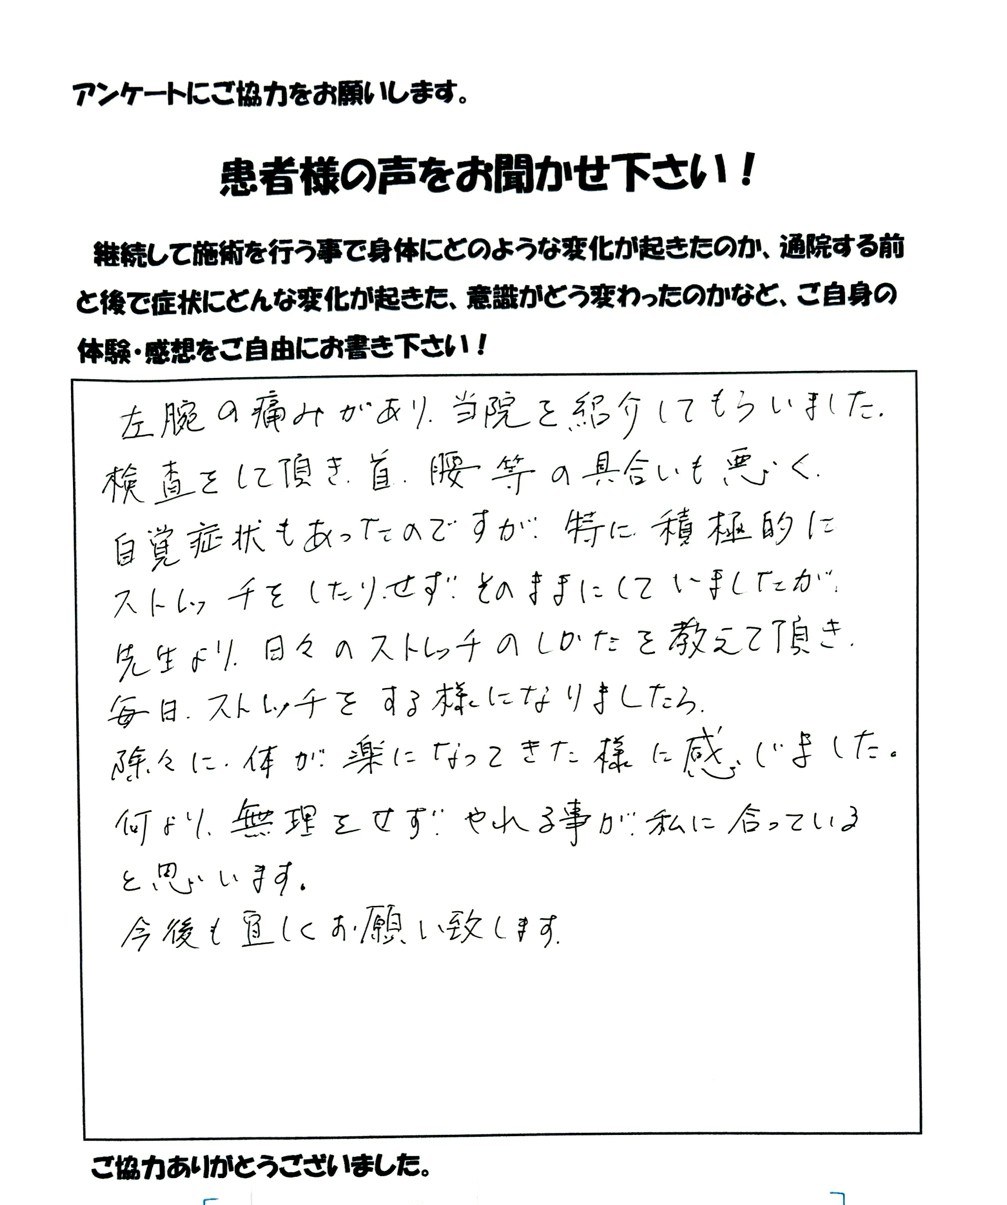 アンケートにご協力をお願いします。
患者様の声をお聞かせ下さい！
継続して施術を行う事で身体にどのような変化が起きたのか、通院する前
と後で症状にどんな変化が起きた、意識がどう変わったのかなど、ご自身の
体験・感想をご自由にお書き下さい！
左腕の痛みがあり、当院を紹介してもらいました。
検査をして頂き、首、腰等の具合いも悪く、
自覚症状もあったのですが、特に積極的に
ストレッチをしたりせず、そのままにしていましたが、
先生より、日々のストレッチのしかたを教えて頂き、
毎日、ストレッチをする様になりましたら、
除々に、体が、楽になってきた様に感じました。
何より、無理をせず、やれる事が、私に合っている
と思います。
今後も宜しくお願い致します。
ご協力ありがとうございました。